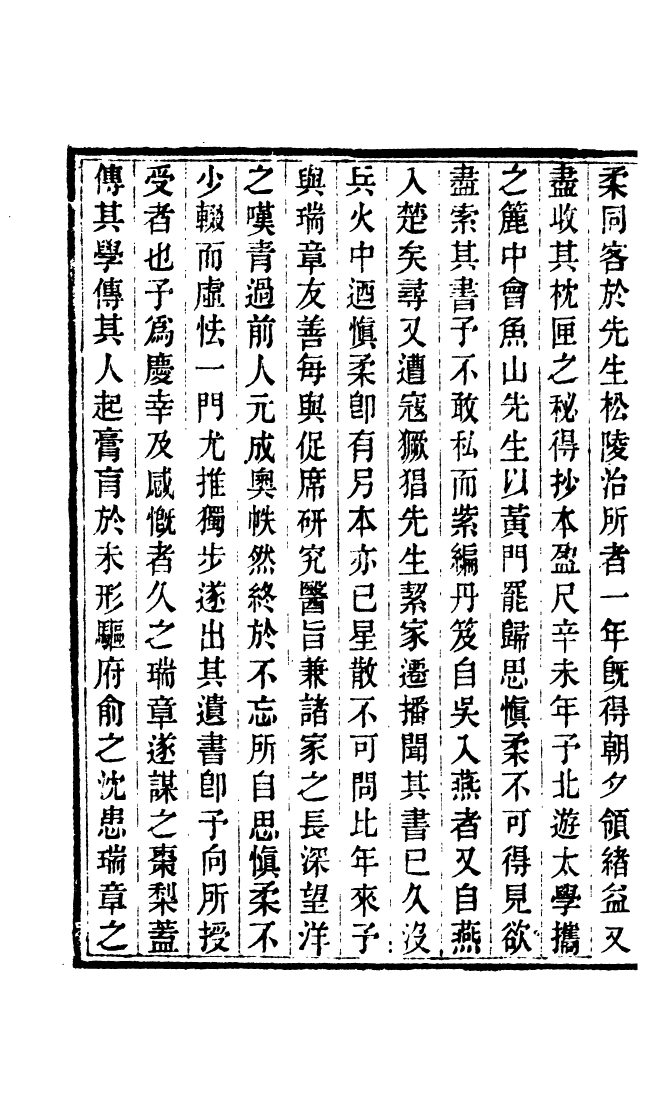 柔同客於先生松陵治所者一年旣得朝夕領緒益又
盡收其枕匣之秘得抄本盈尺辛未年予北遊太學攜
之簏中會魚山先生以黃門罷歸思愼柔不可得見欲
盡索其書予不敢私而紫編丹笈自吳入燕者又自燕
入楚矣尋又遭寇獗猖先生絜家遷播聞其書已久沒
兵火中迺愼柔卽有另本亦已星散不可問比年來予
與瑞章友善每與促席硏究醫旨兼諸家之長深望洋
之嘆青過前人元成奧帙然終於不忘所自思愼柔不
少輟而虛怯一門尤推獨步遂出其遺書卽予向所授
受者也予爲慶幸及感慨者久之瑞章遂謀之棗梨蓋
傳其學傳其人起膏肓於未形驅府俞之沈患瑞章之